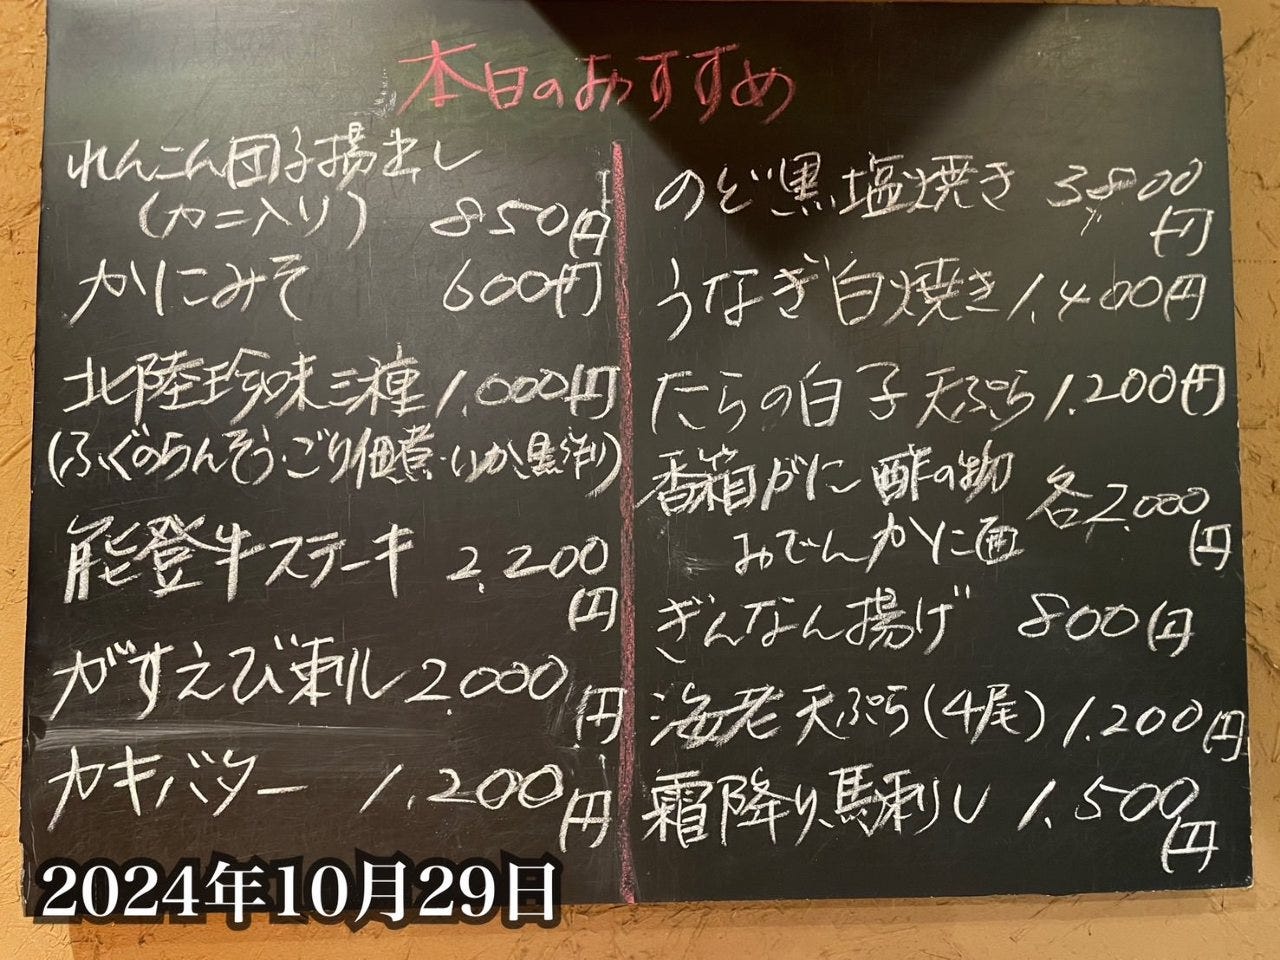 本日のおすすめ
れんこん団子揚出し
(カニ入り) 850円
かにみそ 600円
北陸珍味三種 1,000円
(ふぐのらんそう・ごり佃煮・いか黒作り)
能登牛ステーキ 2,200円
がすえび刺し 2,000円
カキバター 1,200円
のど黒塩焼き 3,800円
うなぎ白焼き 1,400円
たらの白子天ぷら 1,200円
香箱がに 酢の物 各2,000円
おでんかに面
ぎんなん揚げ 800円
海老天ぷら(4尾) 1,200円
霜降り馬刺し 1,500円
2024年10月29日